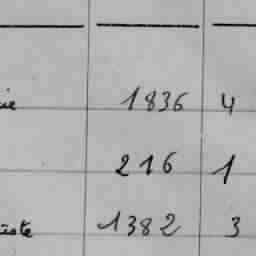 ie 1836 4
216 1
iste 1382 3